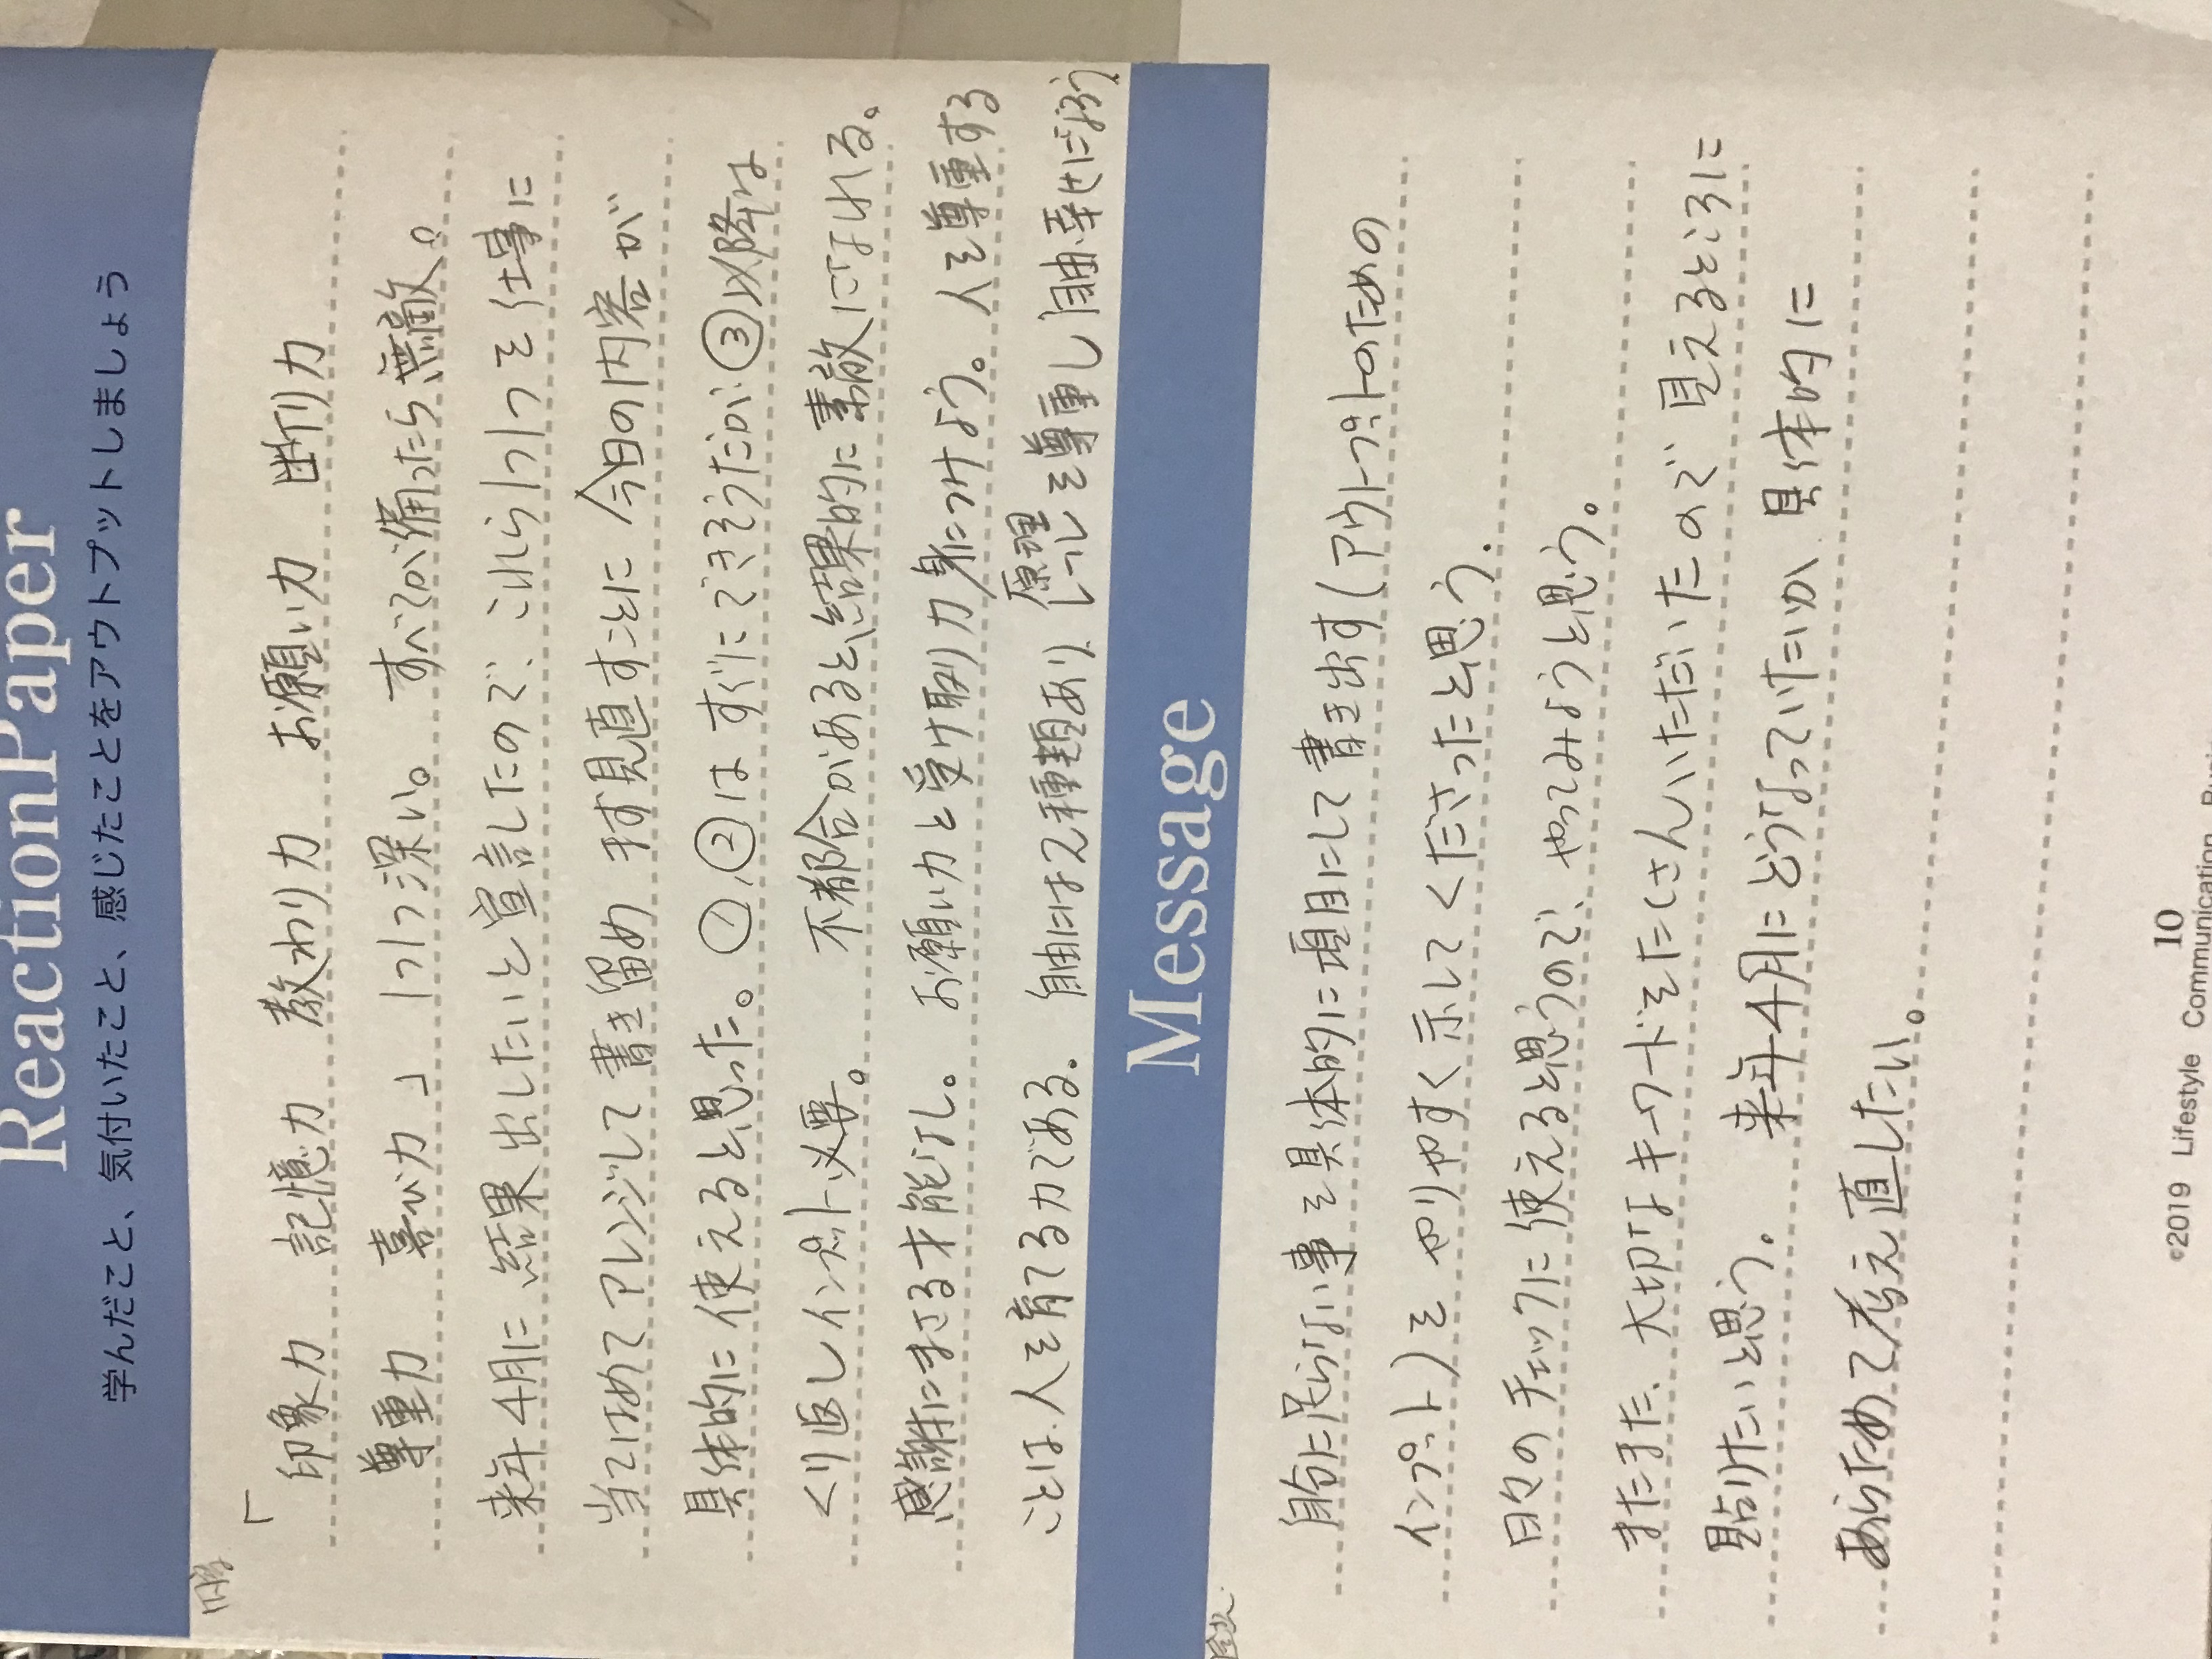 ReactionPaper
学んだこと、気付いたこと、感じたことをアウトプットしましょう
「印象力 記憶力 教わり力 お願い力 断り力
尊重力 喜び力」 1つ1つ深い。 すべてが備ったら無敵。
来年4月に結果出したいと宣言したので、これら1つ1つを仕事に
当てはめてアレンジして書き留め まず見直すことに 今日の内容が
具体的に使えると思った。①、②はすぐにできそうだが③以降は
くり返しインプット必要。 不都合があると、結果的に素敵になれる。
感謝にまさる才能なし。 お願い力と受け取り力身につけよう。人を尊重する
ことは人を育てる力である。 自由には2種類あり、原理
しつを尊重し自由幸せになろう
Message
自分に足らない事を具体的に項目にして書き出す(アウトプットのための
インプット)を やりやすく示してくださったと思う.
日々のチェックに使えると思うので、やってみようと思う。
またまた、大切なキーワードをたくさんいただいたので見えるところに
貼りたいと思う. 来年4月にどうなっていたいか 具体的に
あらためて考え直したい。
10
©2019 Lifestyle Communication